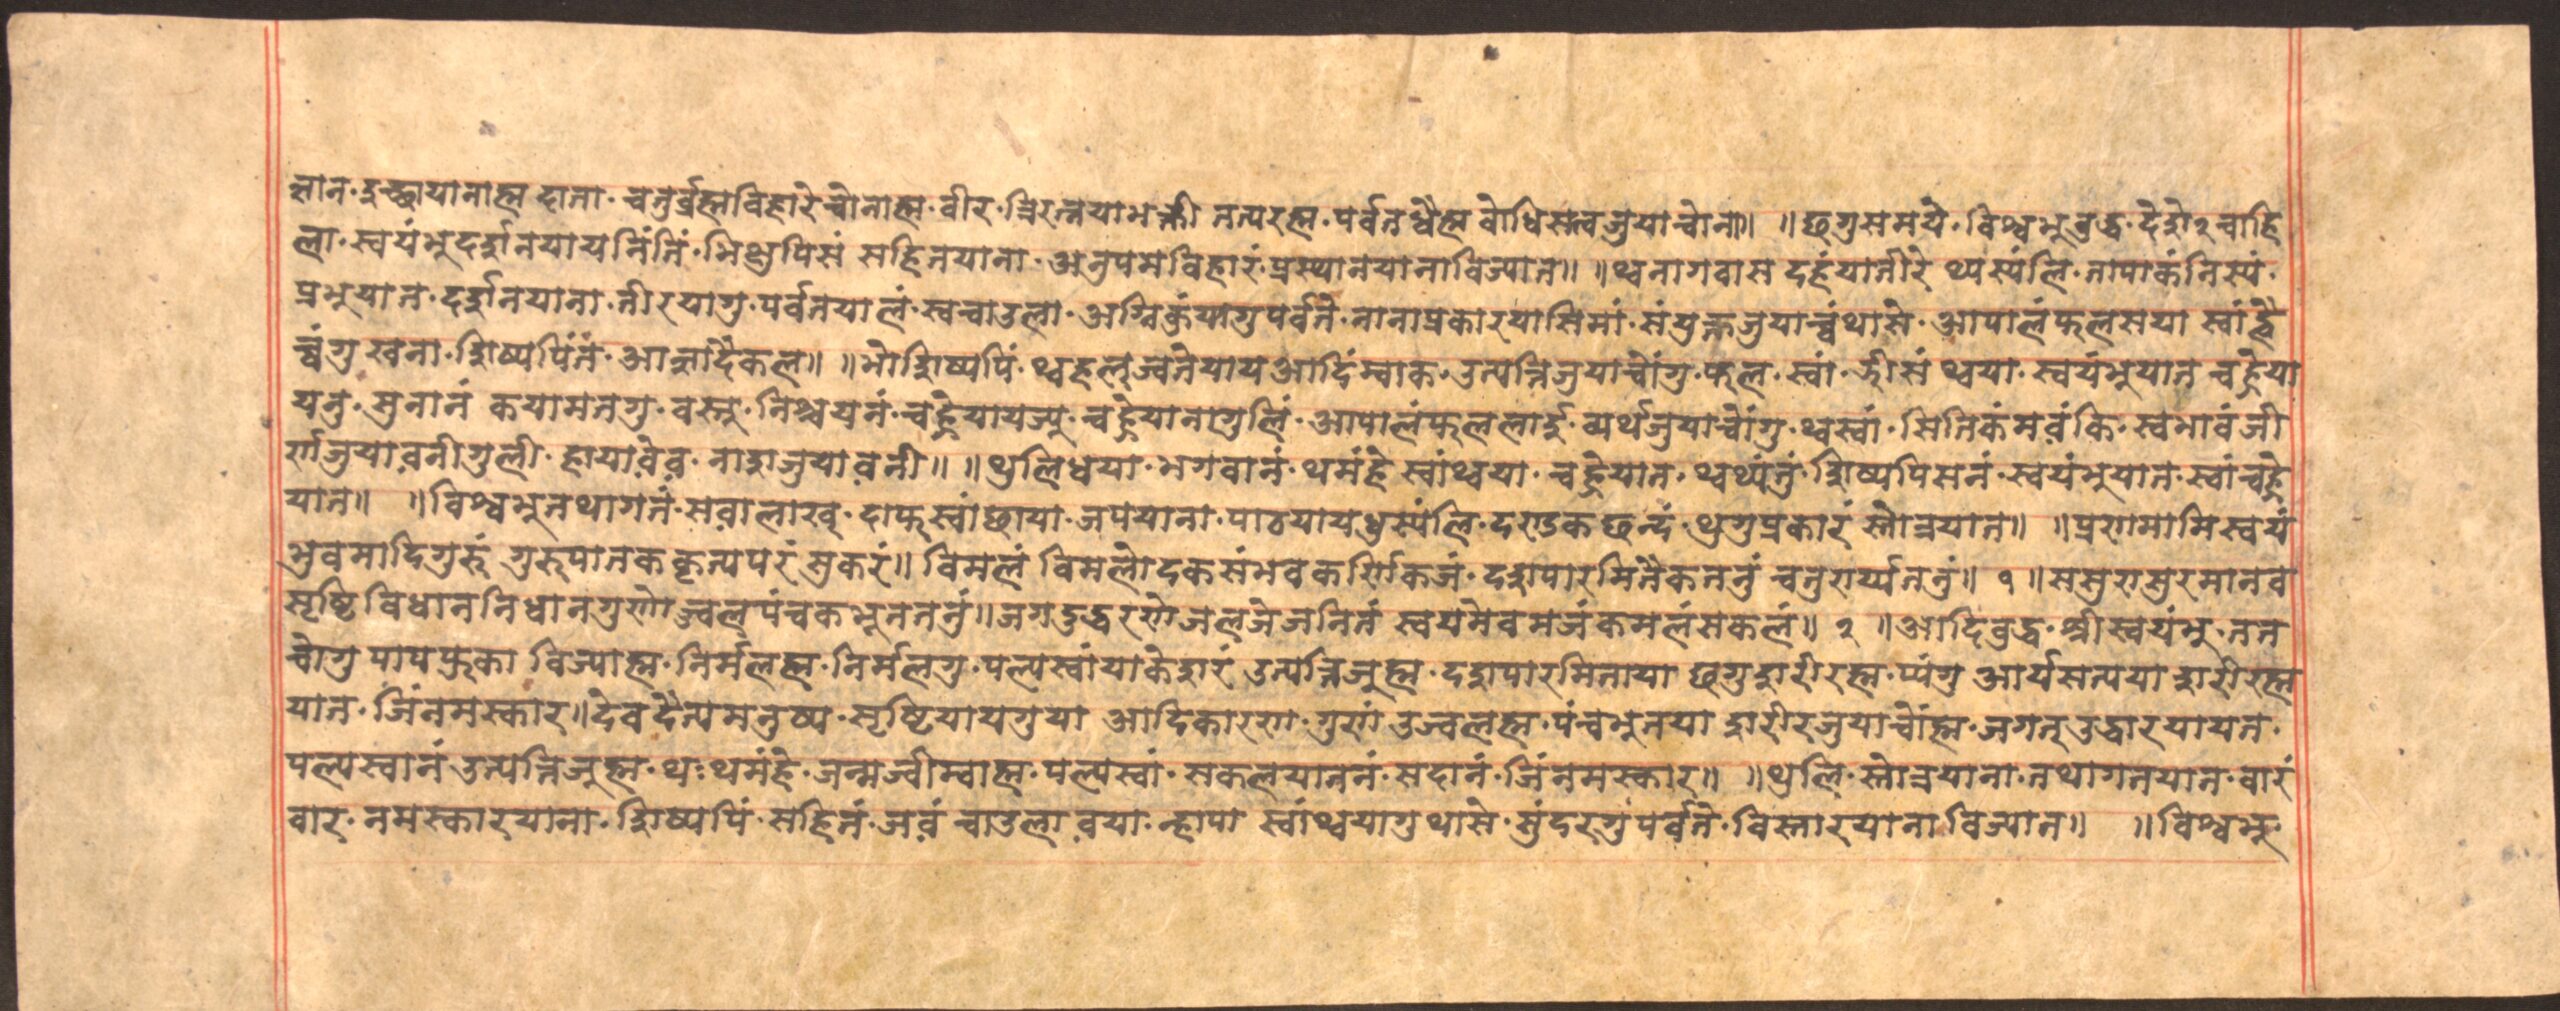 ज्ञान॰दुच्छायानाह्म दाता॰चतुर्ब्रह्मविहारे चोनाह्म॰वीर॰त्रिरत्नयाभक्ती तत्परह्म॰पर्वतधैह्म बोधिसत्वजुयाचोन॥ ॥छगुसमये॰विश्वभुबुद्ध॰देशे२चाहि
ला॰स्वयंभुदर्शनयायनिंतिं॰भिक्षुपिसं सहितयाना॰अनुपमविहारं॰प्रस्थानयानाविज्यात॥ ॥थ्वनागवास दहंयातीरे थ्यस्यंलि॰नापाकंनिस्यं॰
प्रभुयात॰दर्शनयाना॰तीरयागु॰पर्वतयालं॰स्वचाउला॰अग्निकुंयागुपर्वते॰नानाप्रकारयासिमां॰संयुक्तजुयाच्वंथासे॰आपालंफलसया स्वांहै
च्वंगु खना॰शिष्यपिंतं॰आज्ञादैकल॥ ॥भोशिष्यपिं॰थ्वहलज्वनेयाय आदिंम्वाक॰उत्पत्तिजुयाचोंगु॰फल॰स्वां॰जीसं थ्वया॰स्वयंभुयात चह्रेया
यनु॰सुनानं कयामतगु॰वस्तु॰निश्चयनं॰चह्रेयायज्यु॰चह्रेयानागुलिं॰आपालंफलला र्इु॰व्यर्थजुयाचोंगु॰थ्वस्वां॰सितिकंमवंकि॰स्वभावंजी
र्णजुयावनीगुली॰हायावंव॰नाशजुयावनी॥ ॥थुलिधया॰भगवानं॰थमंहे स्वांथ्वया॰चह्रेयात॰थ्वथ्यंतुं॰शिष्यपिसनं॰स्वयंभुयात॰स्वांचह्रे
यात॥ ॥विश्वभुतथागतं॰सवालाख॰दाफस्वांछाया॰जपयाना॰पाठयायधुस्यंलि॰दण्डकछन्दं॰थुगुप्रकारं स्तोत्रयात॥ ॥प्रणमामिस्वयं
भुवमादिगुरुं गुरुपातककृत्यपरं सुकरं॥ विमलं विमलोदकसंभवकर्णिकजं॰दशपारमितैकतनुं चतुरार्य्यतनुं॥ १ ॥ससुरासुरमानव
सृष्टिविधाननिधानगुणोज्ज्वलपंचकभूततनुं॥जगदुद्धरणेजलजेजनितं स्वयमेवमजंकमलंसकलं॥ २ ॥आदिबुद्ध॰श्रीस्वयंभु॰नत
चोगु पापफुका विज्याह्म॰निर्मलह्म॰निर्मलगु॰पल्यस्वांयाकेशरं उत्पत्तिजुह्म॰दशपारमितायाा छगुशरीरह्म॰प्यंगु आर्यसत्यया शरीरह्म
यात॰जिंनमस्कार॥देवदैत्यमनुष्य॰सृष्टियायगुया आदिकारण॰गुणं उज्वलह्म॰पंचभुतया शरीरजुयाचोंह्म॰जगत्उद्धारयायत॰
पल्यस्वानं उत्पत्तिजुह्म॰थःथमंहे॰जन्मज्वीम्वाह्म॰पल्यस्वां॰सकलयातनं॰सदानं॰जिंनमस्कार॥ ॥थुलि॰स्तोत्रयाना॰तथागतयात॰वारं
वार॰नमस्कारयाना॰शिष्यपिं॰सहितं॰जवं चाउला वया॰न्हापा स्वांथ्वयागुथासे॰सुंदरगुपर्वते॰विस्तारयाना विज्यात॥ ॥विश्वभु॰